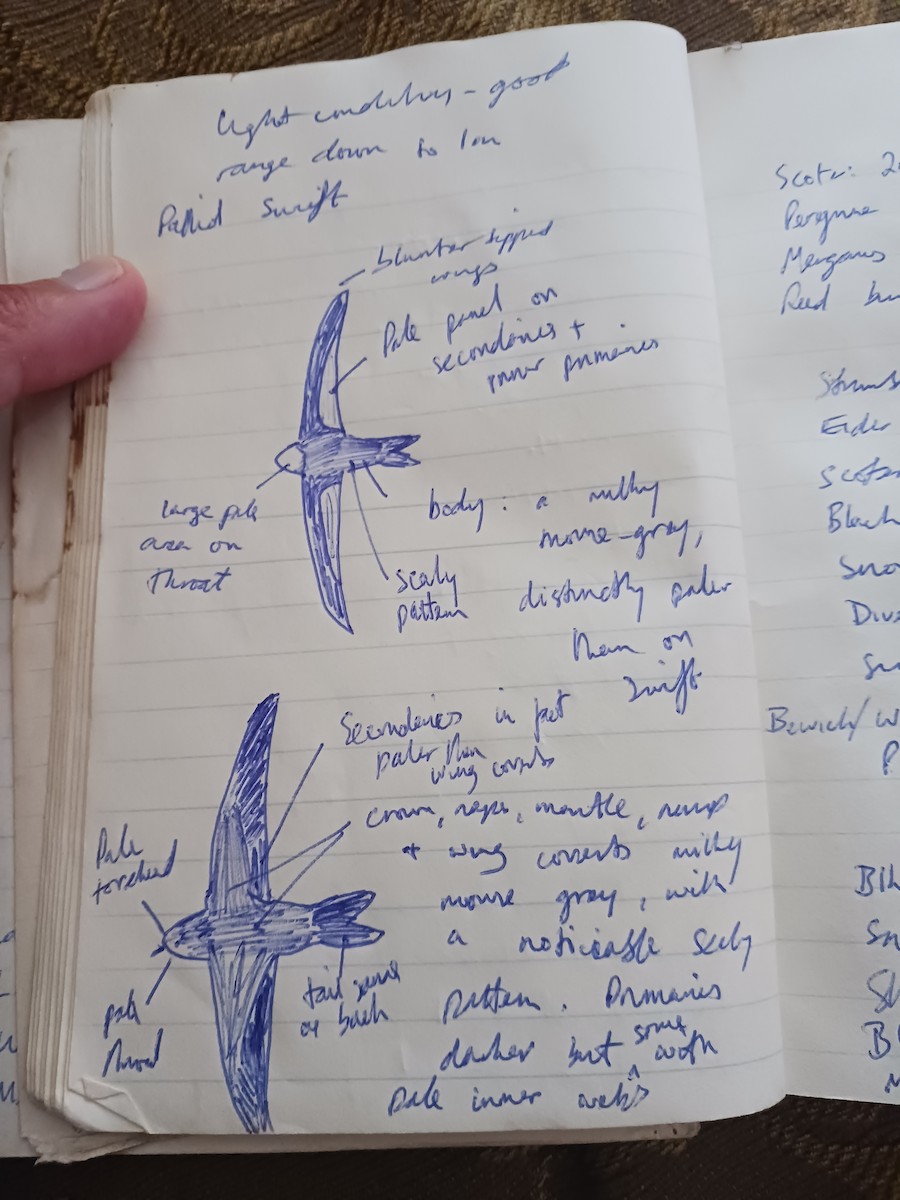 Light conditions - good
range down to 1m
Pallid Swift
blunter tipped
wings
Pale panel on
secondaries +
inner primaries
large pale
area on
throat
scaly
pattern
body : a milky
mouse-gray,
distinctly paler
than on
Swift
Secondaries in fact
paler than
wing coverts
crown, nape, mantle, rump
+ wing coverts milky
mouse gray, with
a noticeable scaly
pattern. Primaries
darker but some with
pale inner webs
Pale
forehead
pale
throat
tail same
as back
Scoter: 2
Peregrine
Reed bu
Eider
Scoter
Black
Sno
Dive
Bewick/W
P